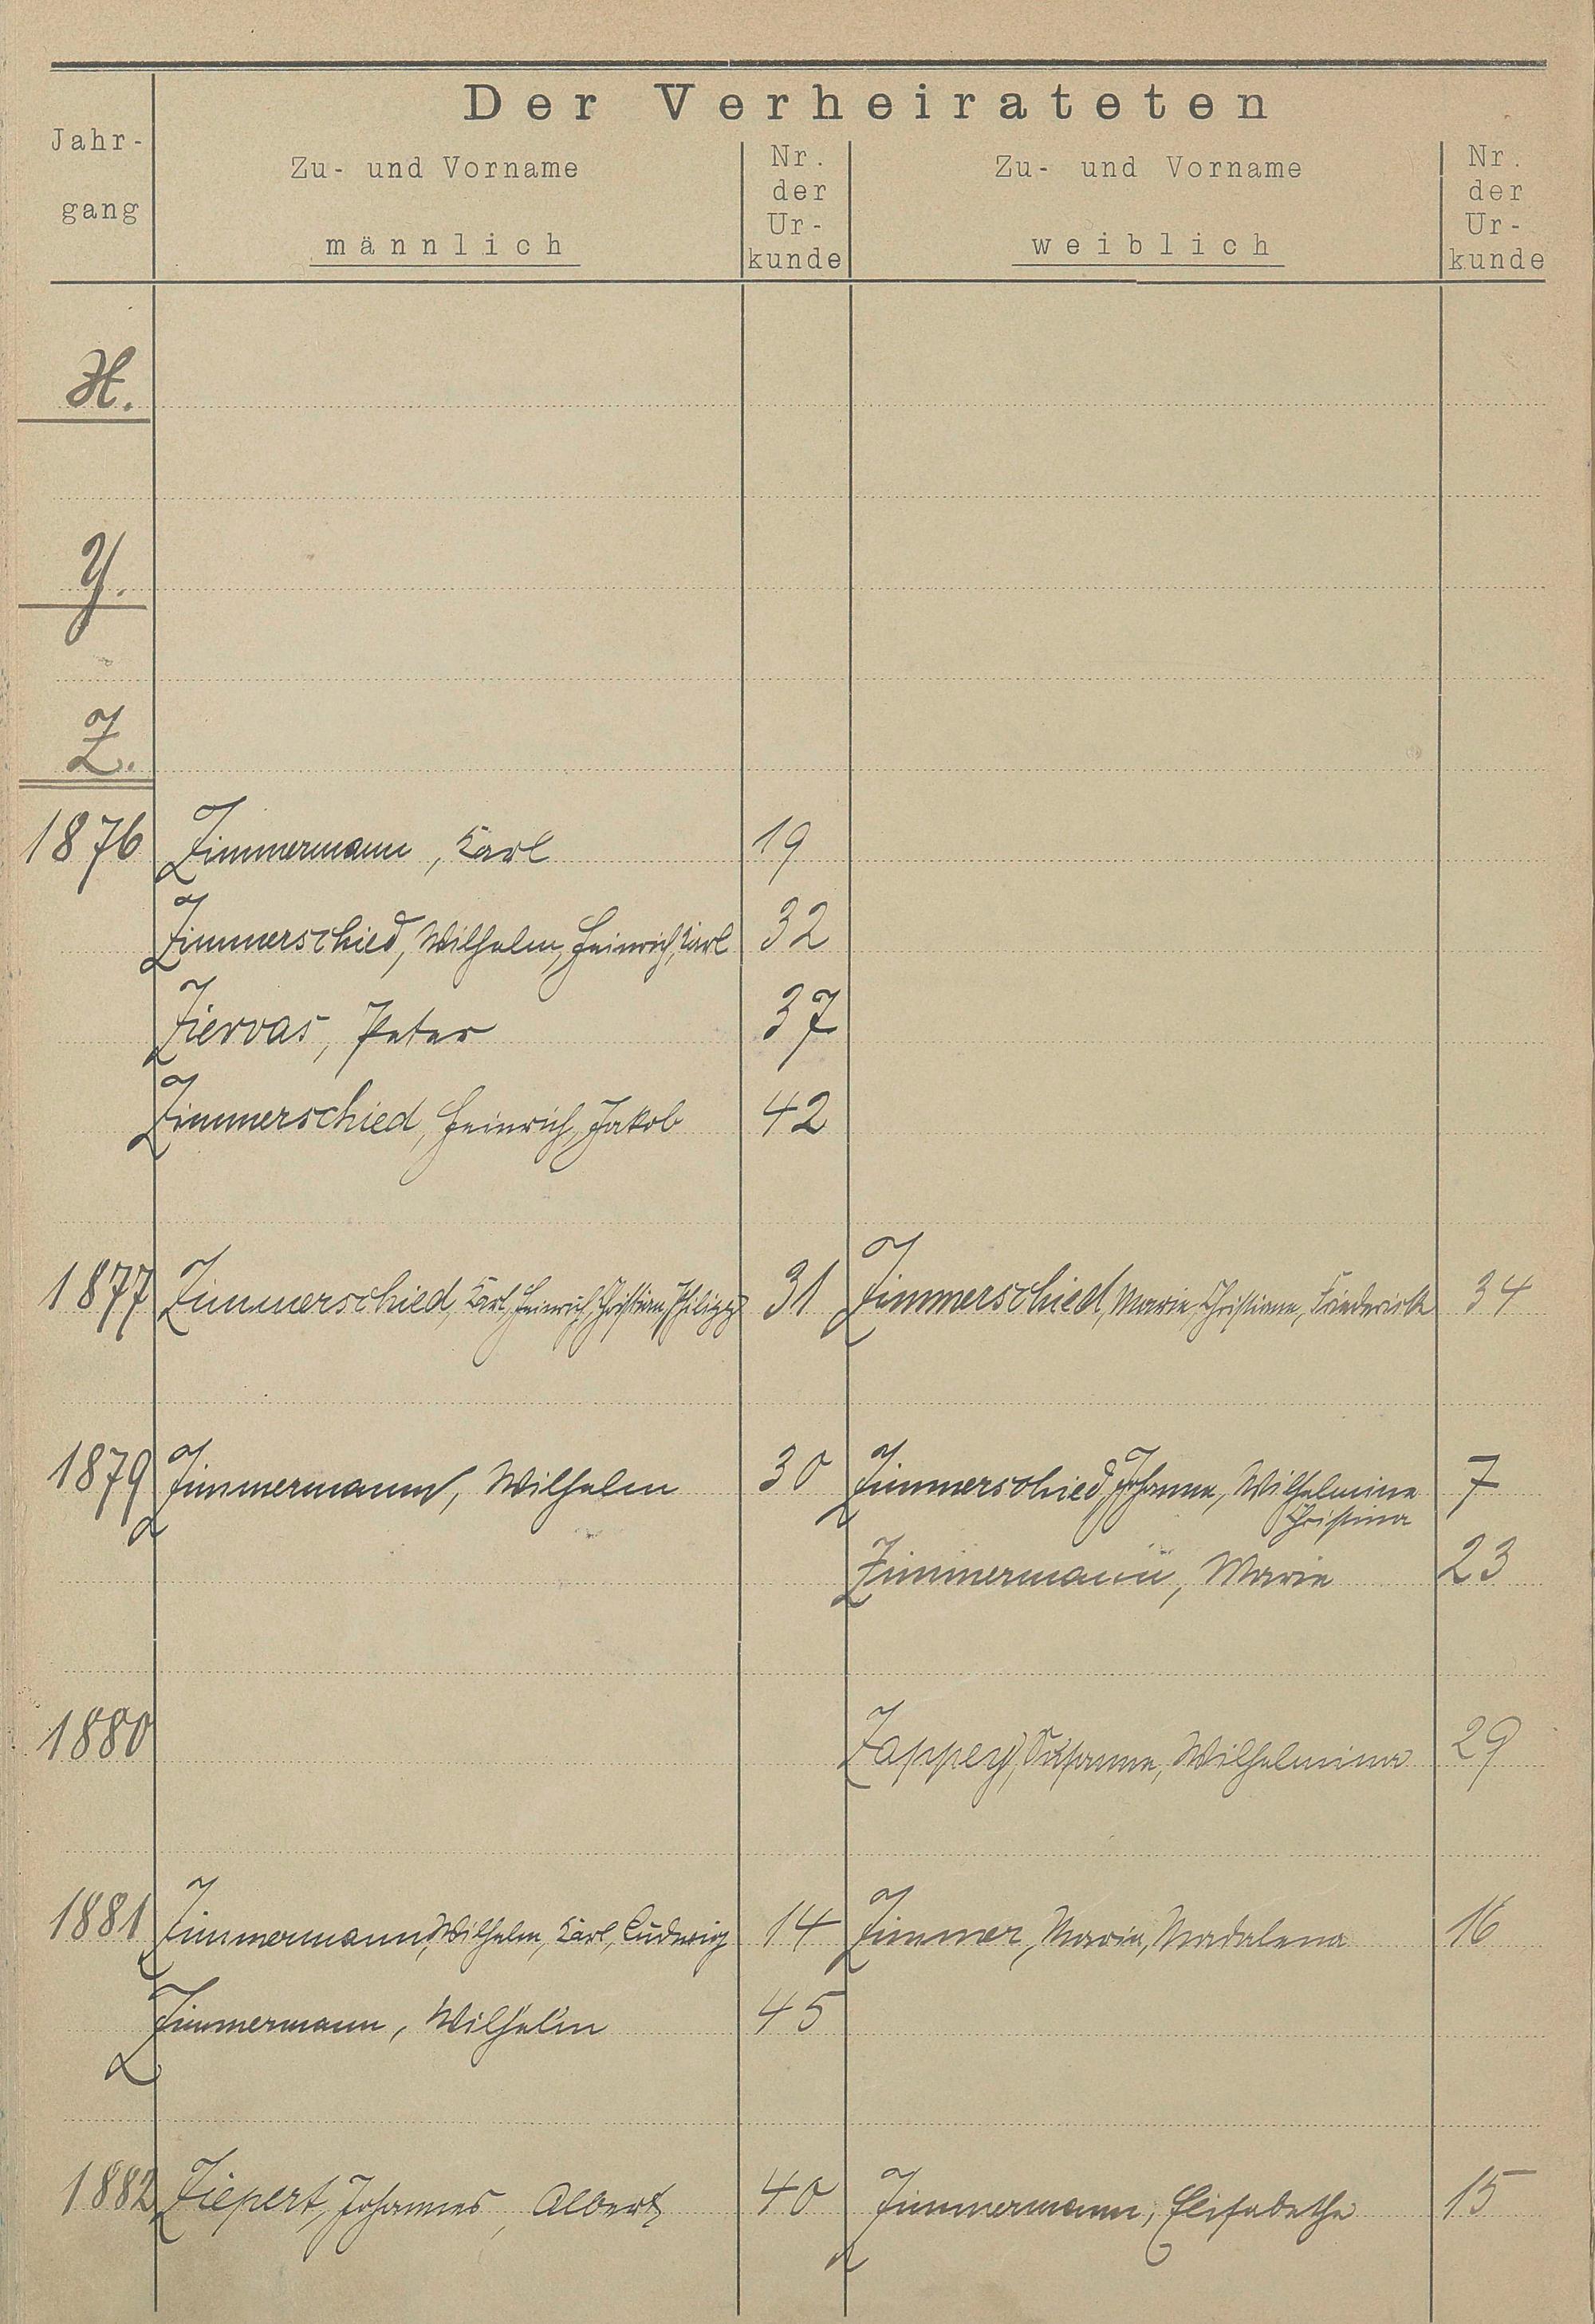 Der Verheirateten
Jahr-
gang
Zu- und Vorname
männlich
Nr.
der
Ur-
kunde
Zu- und Vorname
weiblich
Nr.
der
Ur-
kunde
X.
Y.
Z.
1876 Zimmermann, Karl 19
Zimmerschied, Wilhelm, Heinrich, Karl 32
Ziervas, Peter 37
Zimmerschied, Heinrich, Jakob 42
1877 Zimmerschied, Karl, Heinrich, Christian, Philipp 31 Zimmerschied, Marie, Christiane, Friedericke 34
1879 Zimmermann, Wilhelm 30 Zimmerschied, Johanna, Wilhelmine 7
Christina
Zimmermann, Marie 23
1880 Zappey, Susanna, Wilhelmina 29
1881 Zimmermann, Wilhelm, Karl, Ludwig 14 Zimmer, Maria, Madalena 16
Zimmermann, Wilhelm 45
1882 Ziepert, Johannes, Albert 40 Zimmermann, Elisabetha 15